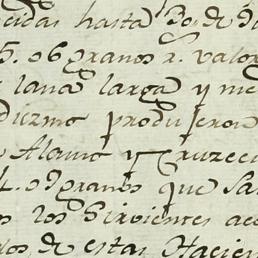 cidas hasta 30. de
5. 06 granos r. valor
lana larga y me
Diezmo produjeron
Alamo y Cruzec
4. 09 granos que sa
s los Sirvientes ac
os de estas Hacien